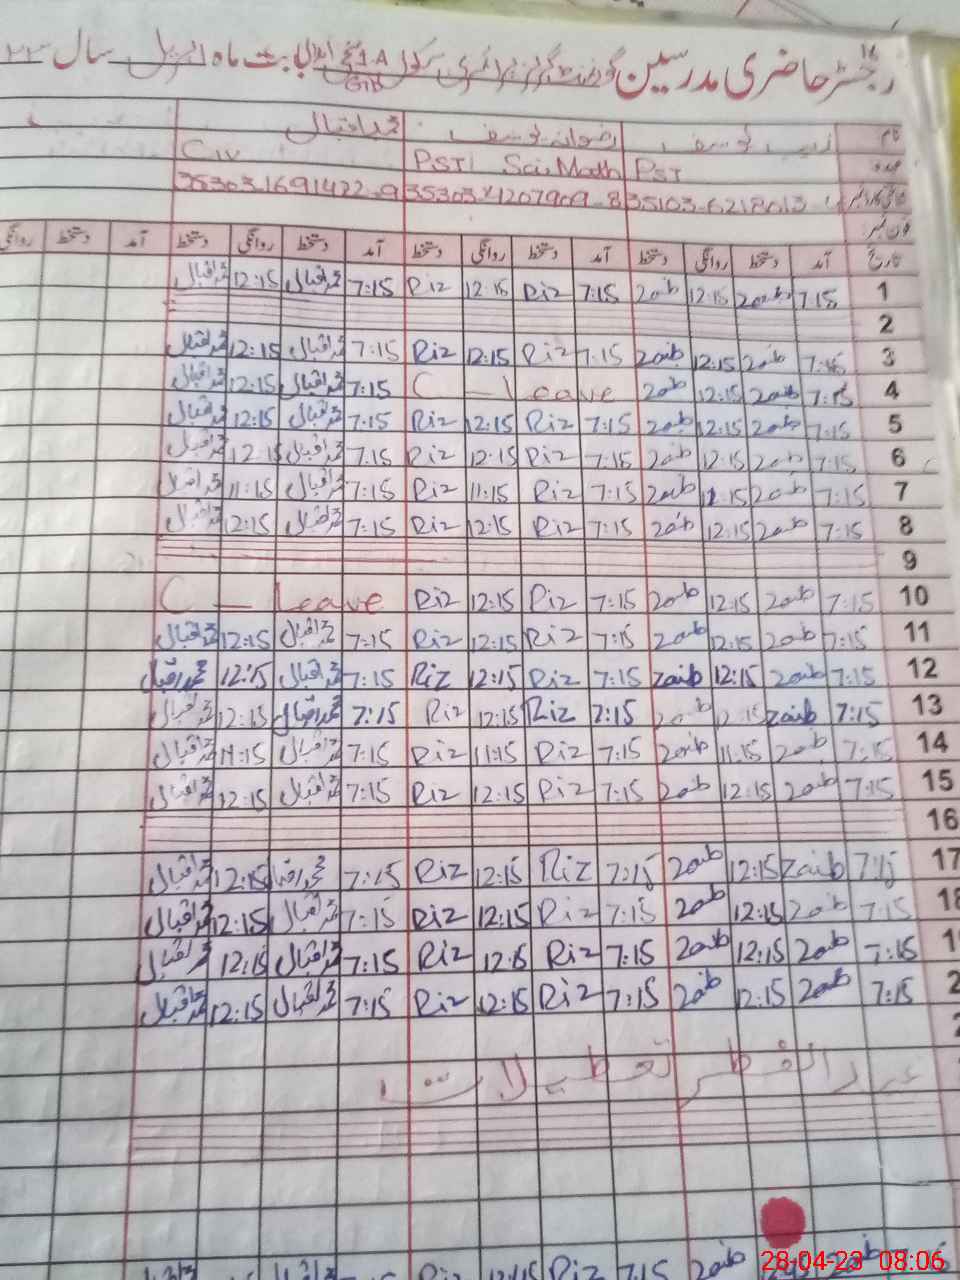 رجسٹر حاضری مدرسین گورنمنٹ گرلز پرائمری سکول بابت ماہ اپریل سال
نام زیب یوسف رضوان یوسف محمد اقبال
عہدہ PST PST Sci, Math C IV
شناختی کارڈ نمبر 35103-6218613 35303-4207909-8 35303-1691422-9
فون نمبر
تاریخ آمد دستخط روانگی دستخط آمد دستخط روانگی دستخط آمد دستخط روانگی دستخط آمد دستخط روانگی
1 7:15 Zaib 12:15 Zaib 7:15 Riz 12:15 Riz 7:15 محمد اقبال 12:15 محمد اقبال
2
3 7:15 Zaib 12:15 Zaib 7:15 Riz 12:15 Riz 7:15 محمد اقبال 12:15 محمد اقبال
4 7:15 Zaib 12:15 Zaib C - Leave 7:15 محمد اقبال 12:15 محمد اقبال
5 7:15 Zaib 12:15 Zaib 7:15 Riz 12:15 Riz 7:15 محمد اقبال 12:15 محمد اقبال
6 7:15 Zaib 12:15 Zaib 7:15 Riz 12:15 Riz 7:15 محمد اقبال 12:15 محمد اقبال
7 7:15 Zaib 11:15 Zaib 7:15 Riz 11:15 Riz 7:15 محمد اقبال 11:15 محمد اقبال
8 7:15 Zaib 12:15 Zaib 7:15 Riz 12:15 Riz 7:15 محمد اقبال 12:15 محمد اقبال
9
10 7:15 Zaib 12:15 Zaib 7:15 Riz 12:15 Riz C - Leave
11 7:15 Zaib 12:15 Zaib 7:15 Riz 12:15 Riz 7:15 محمد اقبال 12:15 محمد اقبال
12 7:15 Zaib 12:15 Zaib 7:15 Riz 12:15 Riz 7:15 محمد اقبال 12:15 محمد اقبال
13 7:15 Zaib 12:15 Zaib 7:15 Riz 12:15 Riz 7:15 محمد اقبال 12:15 محمد اقبال
14 7:15 Zaib 11:15 Zaib 7:15 Riz 11:15 Riz 7:15 محمد اقبال 11:15 محمد اقبال
15 7:15 Zaib 12:15 Zaib 7:15 Riz 12:15 Riz 7:15 محمد اقبال 12:15 محمد اقبال
16
17 7:15 Zaib 12:15 Zaib 7:15 Riz 12:15 Riz 7:15 محمد اقبال 12:15 محمد اقبال
18 7:15 Zaib 12:15 Zaib 7:15 Riz 12:15 Riz 7:15 محمد اقبال 12:15 محمد اقبال
7:15 Zaib 12:15 Zaib 7:15 Riz 12:15 Riz 7:15 محمد اقبال 12:15 محمد اقبال
7:15 Zaib 12:15 Zaib 7:15 Riz 12:15 Riz 7:15 محمد اقبال 12:15 محمد اقبال
عید الفطر تعطیلات
Zaib Zaib 7:15 Riz 12:15 Riz
28-04-23 08:06